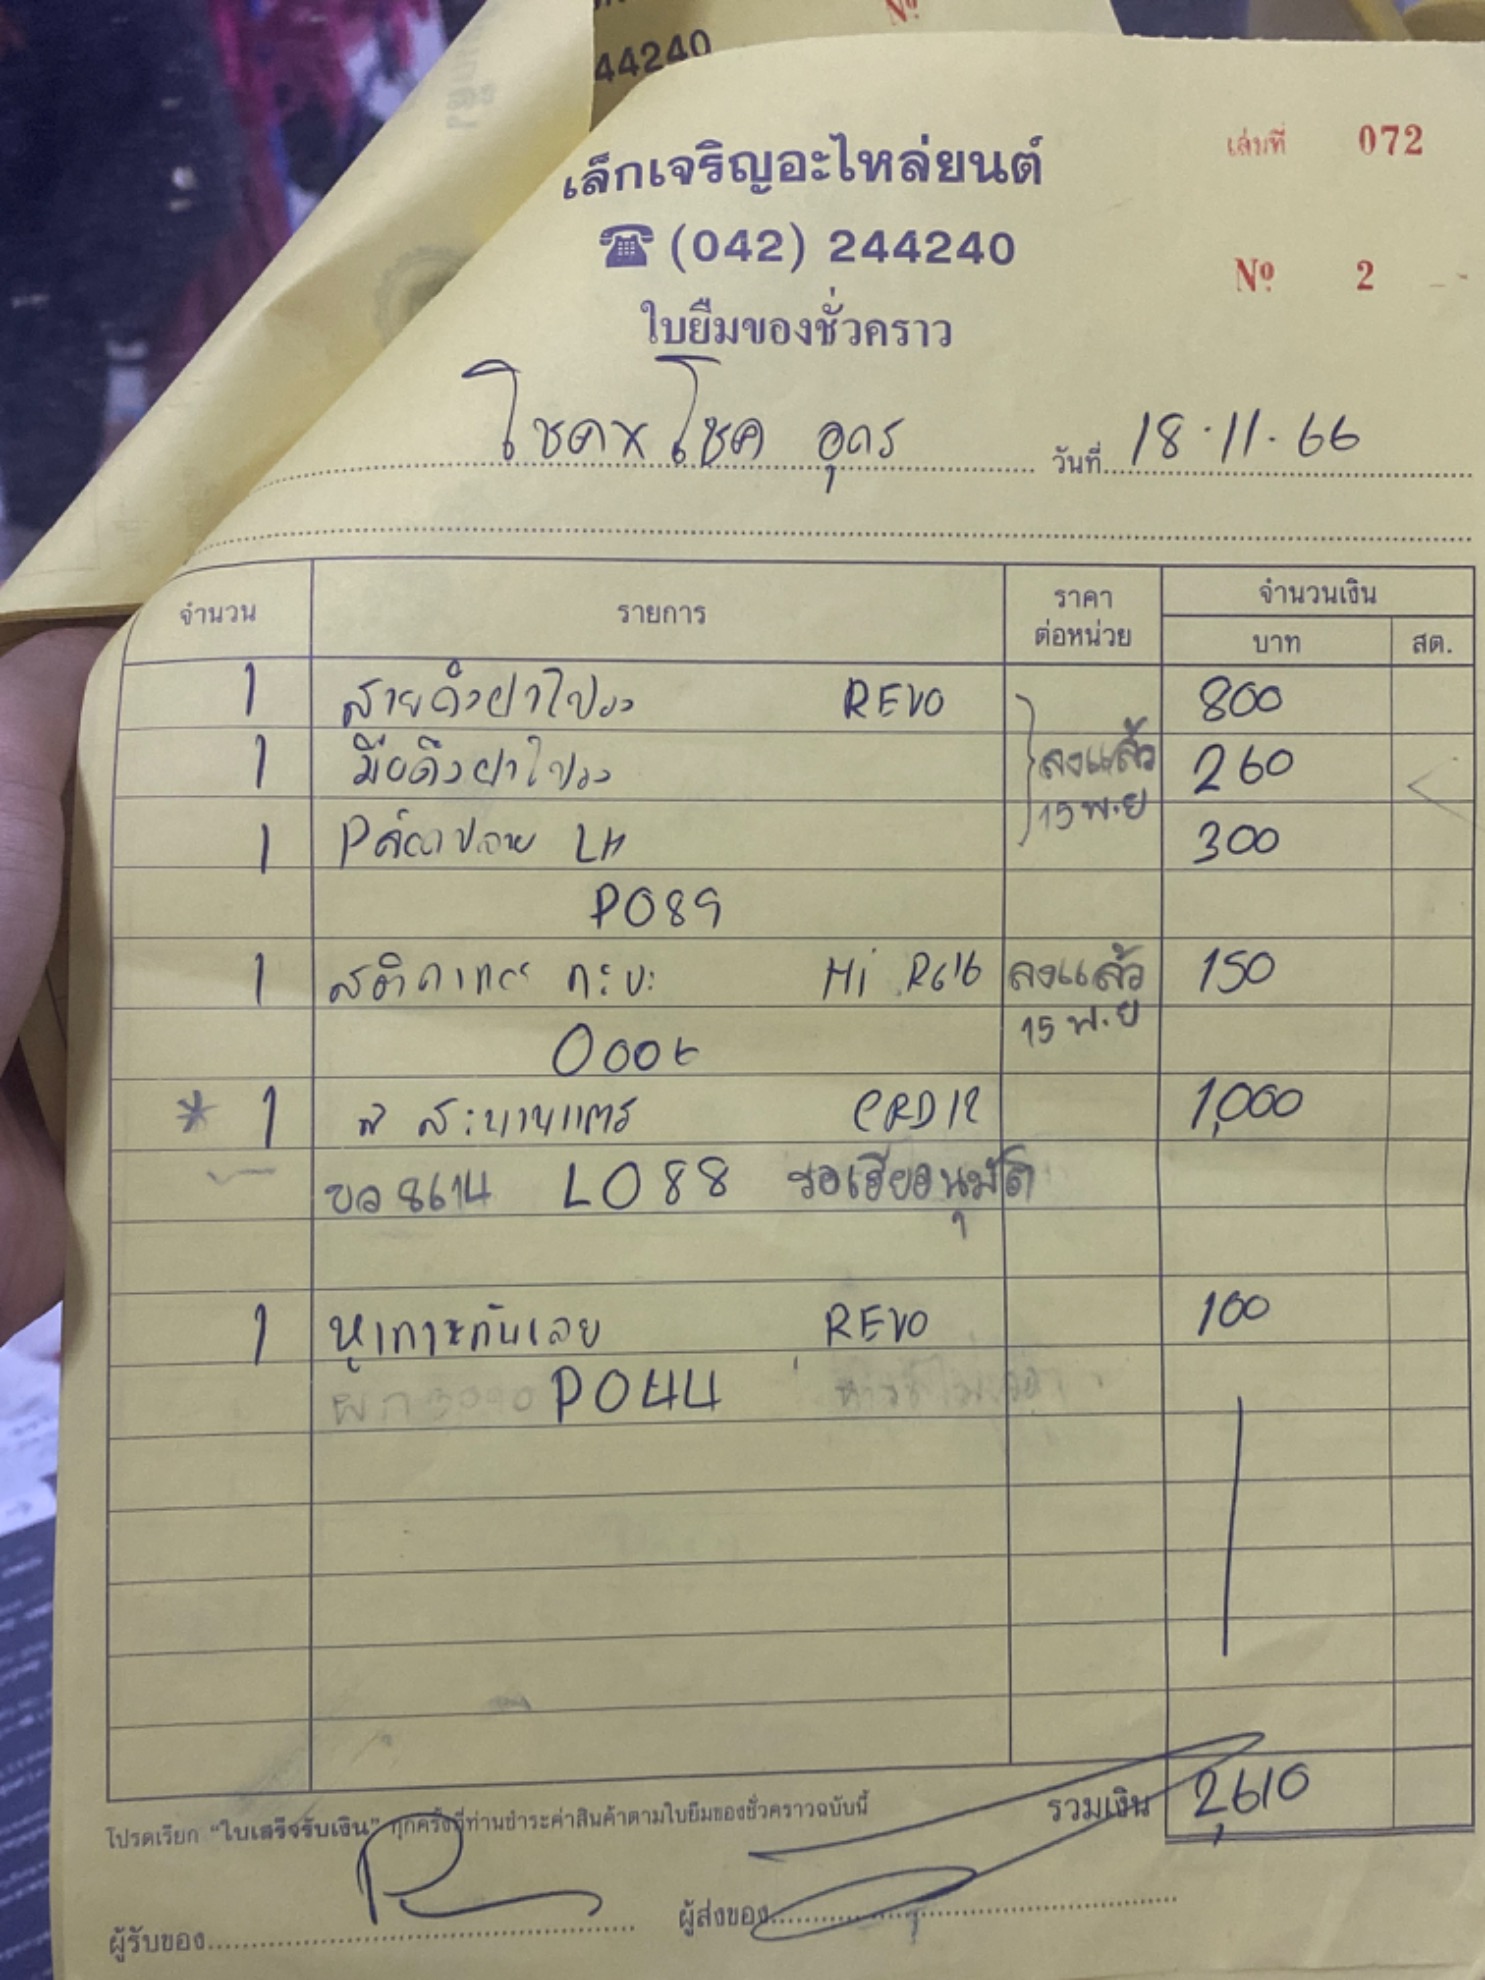 Nº
44240
เล็กเจริญอะไหล่ยนต์
เล่มที่ 072
☎ (042) 244240
Nº 2
ใบยืมของชั่วคราว
โชคxโชค อุดร วันที่ 18.11.66
จำนวน รายการ ราคาต่อหน่วย จำนวนเงิน
บาท สต.
1 สายดึงฝาโปรง REVO 800
1 มือดึงฝาโปรง ลงแล้ว 260
1 LH 15 พ.ย 300
P089
1 สติกเกอร์ กะบะ Hi ลงแล้ว 150
15 พ.ย
* 1 1,000
ขอ 8614 L088 รอเฮียอนุมัติ
1 REVO 100
P044
โปรดเรียก "ใบเสร็จรับเงิน" ทุกครั้งที่ท่านชำระค่าสินค้าตามใบยืมของชั่วคราวฉบับนี้
รวมเงิน 2,610
ผู้รับของ ผู้ส่งของ